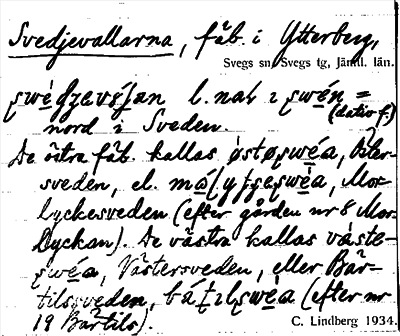 Svedjevallarna, fäb. i Ytterberg,
Svegs sn, Svegs tg, Jämtl. län.
l. nah ɩ swén =
nord i Sveden. (dativ f.)
De östra fäb. kallas østøswéa, Öster-
sveden, el. Mor-
lyckesveden (efter gården nr 8 Mor-
lyckan). De västra kallas väste-
swéa, Västersveden, eller Bär-
tilssveden, (efter nr
19 Bärtils).
C. Lindberg 1934.